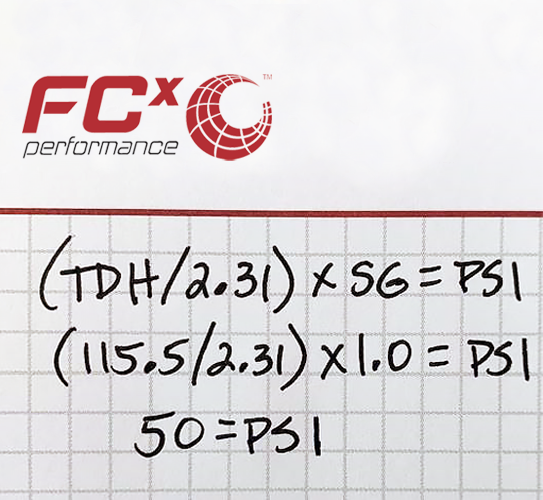 FCx ™
performance
(TDH/2.31) x SG = PSI
(115.5/2.31) x 1.0 = PSI
50 = PSI